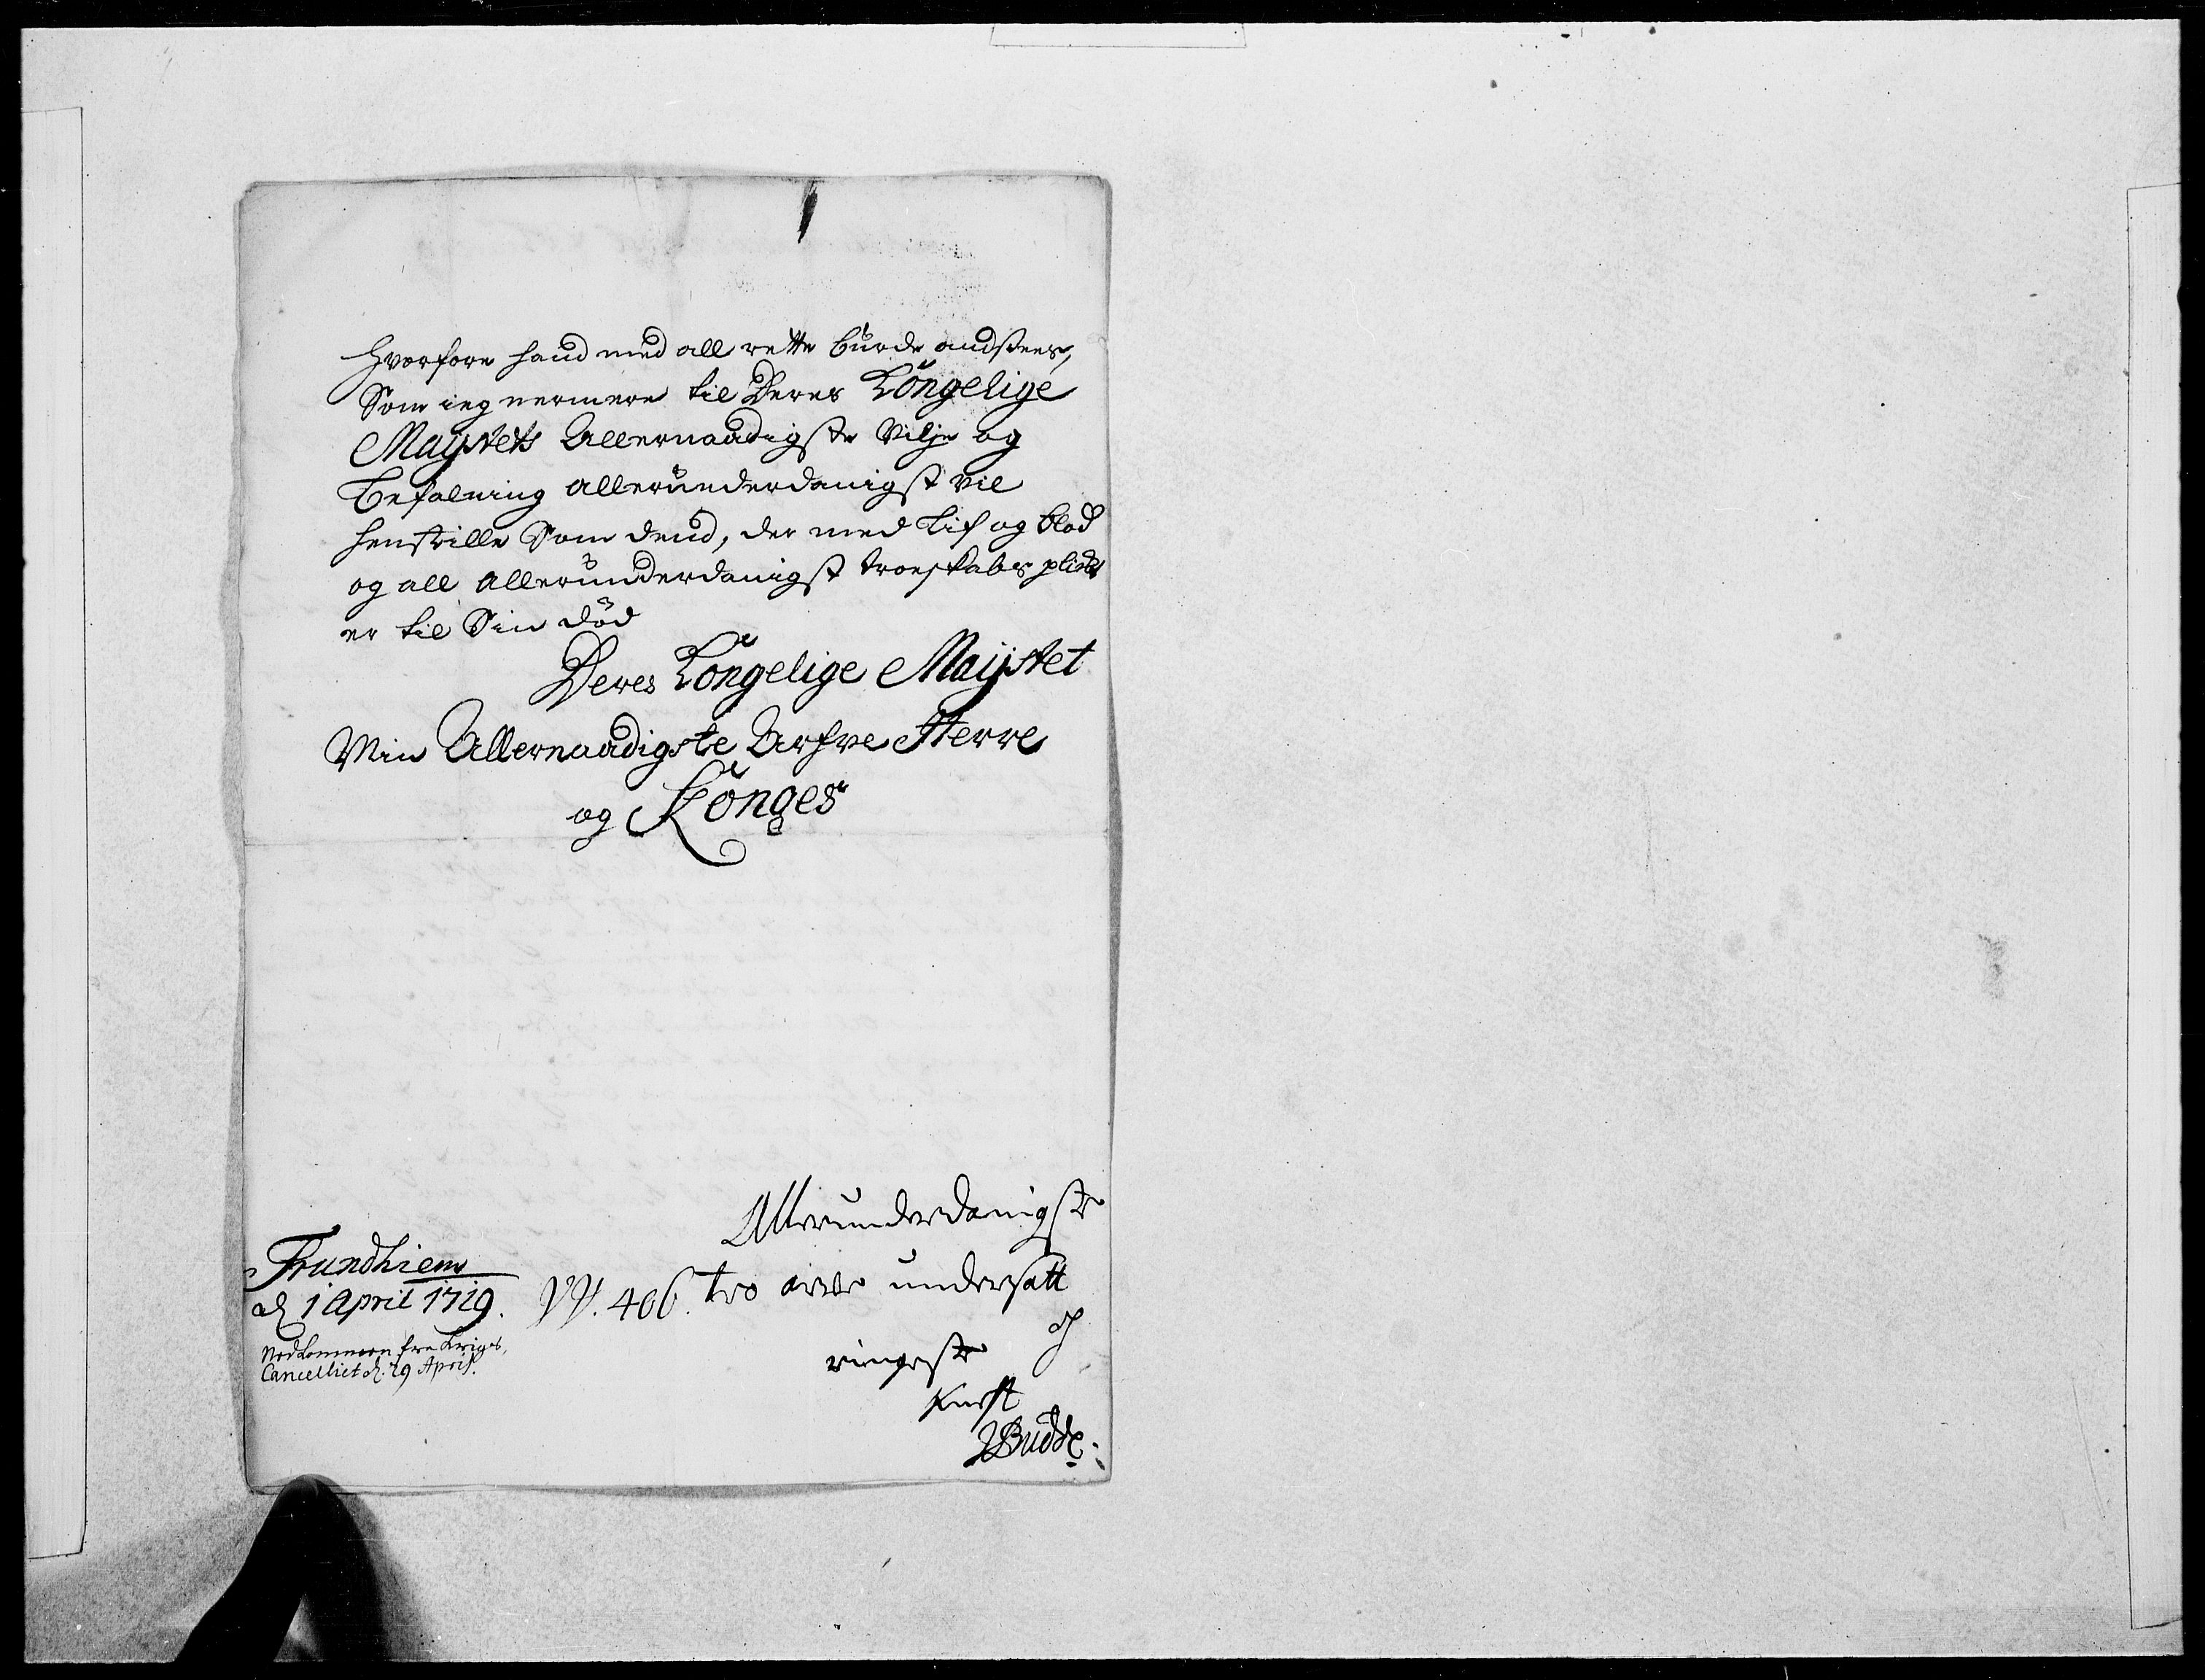 hvorfore hand med all rette burde andsees,
Som ieg nermere til Deres Kongelige
Maystets Allernaadigste Vilje og
Befalning allerunderdanigst vil
henstille Som dend, der med Lif og blod
og all allerunderdanigst troeskabs pligt
er til Sin död
Deres Kongelige Mayistet
Min Allernaadigste Arfve Herre
og Konges
Allerunderdanigste
tro arve undersatt
og
ringeste
Knecht
VBudde
Trundhiem
d 1 April 1719.
N. 406.
Nedkommen fra Krigs,
Cancelliet d. 29 April.